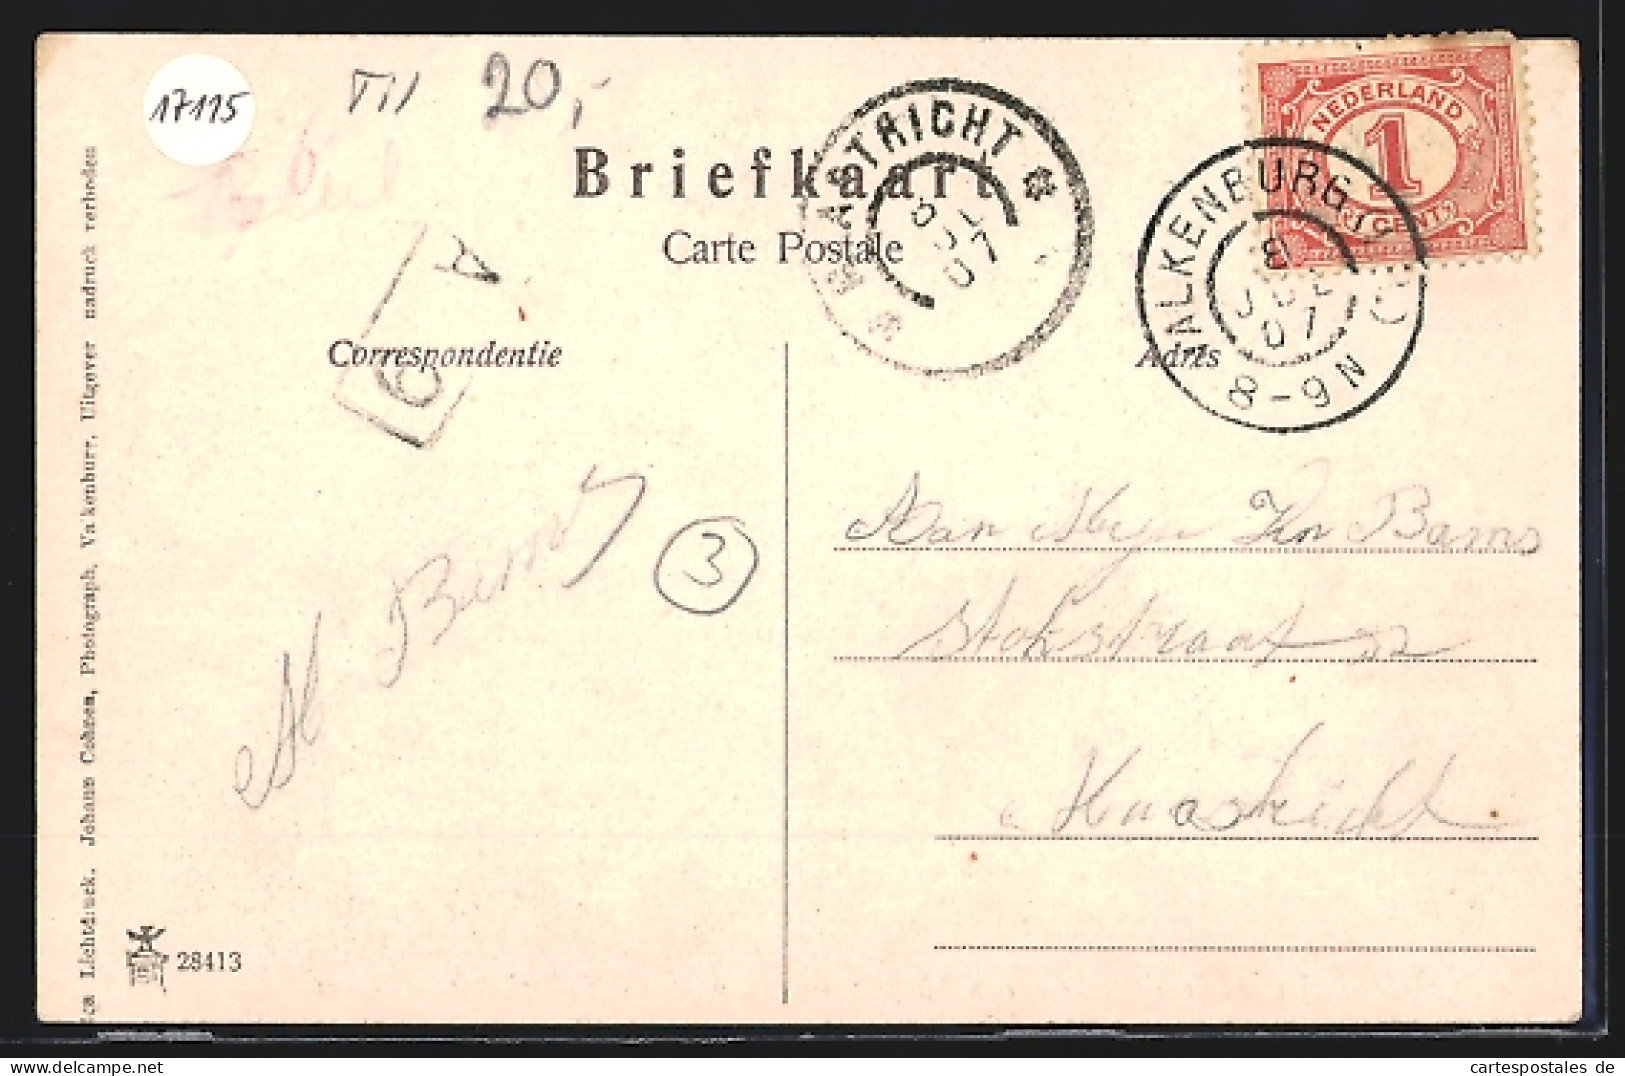 17115
TII 20,-
Briefkaart
Carte Postale
MAASTRICHT
8 JUL 07
VALKENBURG
8 JUL 07
8-9N
NEDERLAND
1
CENT
Correspondentie
Adres
A
6
3
Aan
Stokstraat
Maastricht
Lichtdruck. Johans Cohnen, Photograph, Valkenburg. Uitgever nadruck verboden
28413
www.cartespostales.de